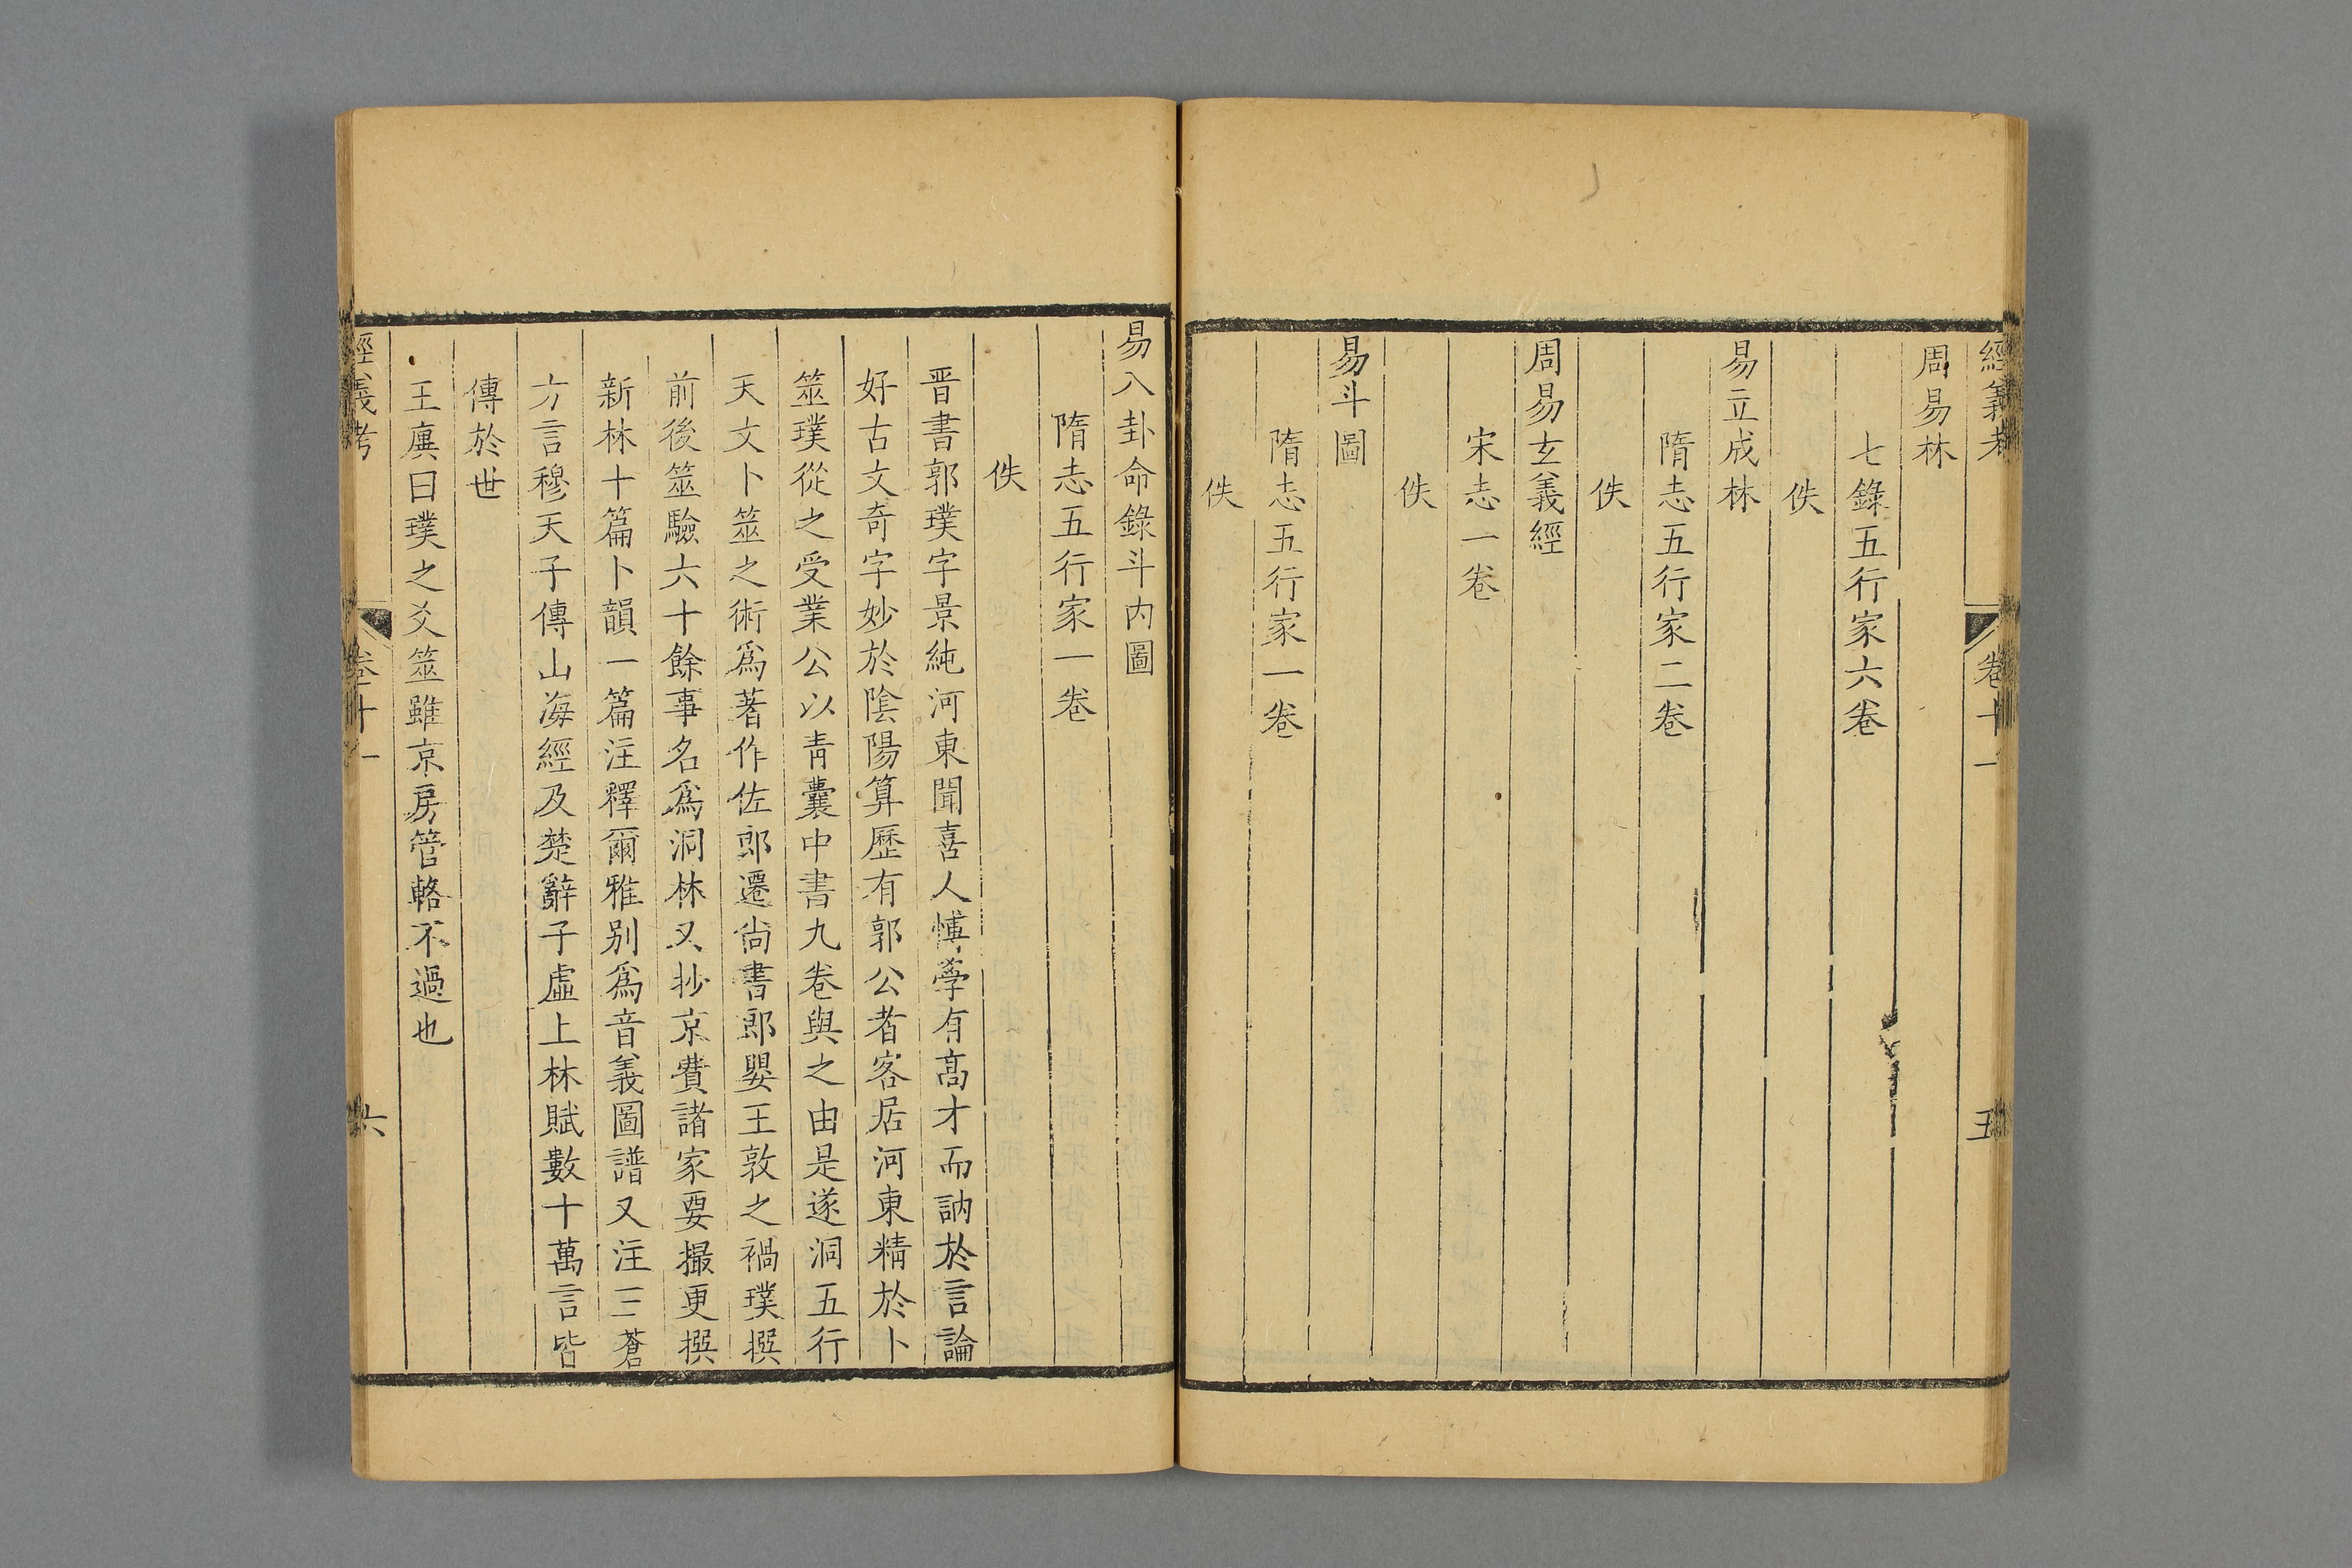 經義考 卷十一 五
周易林
七錄五行家六卷
佚
易立成林
隋志五行家二卷
佚
周易玄義經
宋志一卷
佚
易斗圖
隋志五行家一卷
佚
易八卦命錄斗內圖
隋志五行家一卷
佚
晋書郭璞字景純河東聞喜人愽學有高才而訥於言論
好古文奇字妙於陰陽算歷有郭公者客居河東精於卜
筮璞從之受業公以靑囊中書九卷與之由是遂洞五行
天文卜筮之術爲著作佐郎遷尙書郎嬰王敦之禍璞撰
前後筮驗六十餘事名爲洞林又抄京費諸家要撮更撰
新林十篇卜韻一篇注釋爾雅别爲音義圖譜又注三蒼
方言穆天子傳山海經及楚辭子虛上林賦數十萬言皆
傳於世
王廙曰璞之爻筮雖京房管輅不過也
經義考 卷十一 六